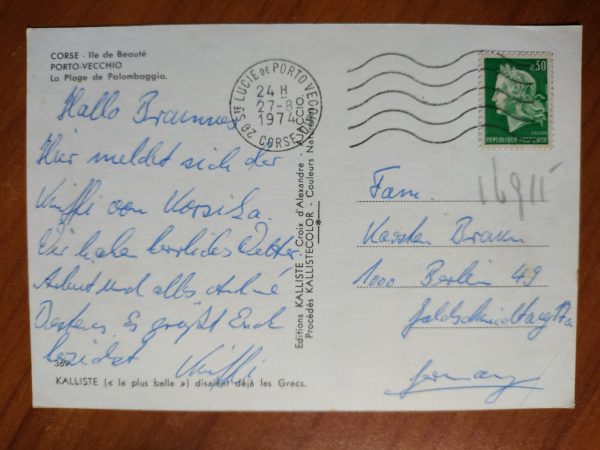 CORSE - Ile de Beauté
PORTO-VECCHIO
La Plage de Palombaggia.
Hallo Brauns
Hier meldet sich der
von Korsika.
Wir haben herrliches Wetter
und alles andere
Bestens. Es grüßt Euch
herzlichst
367
KALLISTE (« le plus belle ») disaient déjà les Grecs.
Editions KALLISTE - Croix d'Alexandre - AJACCIO
Procédés KALLISTECOLOR - Couleurs Naturelles
20 STE LUCIE DE PORTO VECCHIO
24 H
27-8
1974
CORSE
0,30
REPUBLIQUE
Fam.
Karsten Braun
1000 Berlin 49
Germany